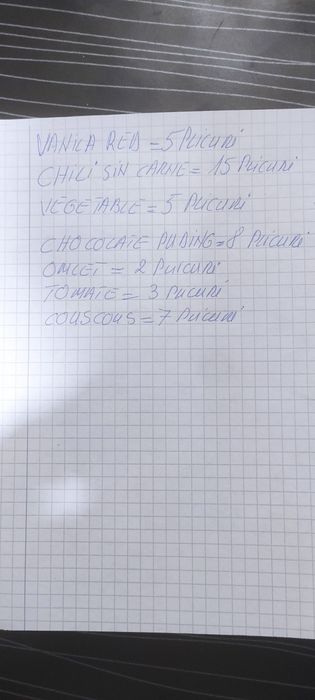 VANILA RED = 5 PLICURI
CHILI SIN CARNE = 15 PLICURI
VEGETABLE = 5 PLICURI
CHOCOLATE PUDING = 8 PLICURI
OMLET = 2 PLICURI
TOMATE = 3 PLICURI
COUSCOUS = 7 PLICURI